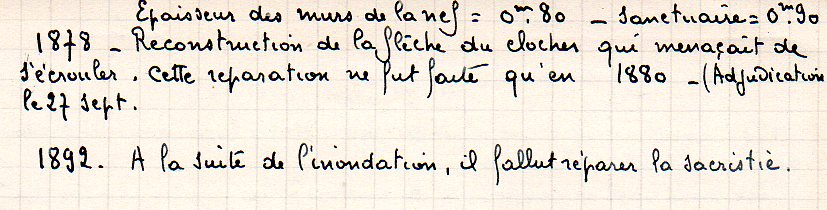 Epaisseur des murs de la nef = 0m.80 - Sanctuaire = 0m.90
1878 - Reconstruction de la flêche du clocher qui menaçait de
s'écrouler. Cette reparation ne fut faite qu'en 1880 - (Adjudication
le 27 sept.
1892. A la suite de l'inondation, il fallut réparer la sacristie.